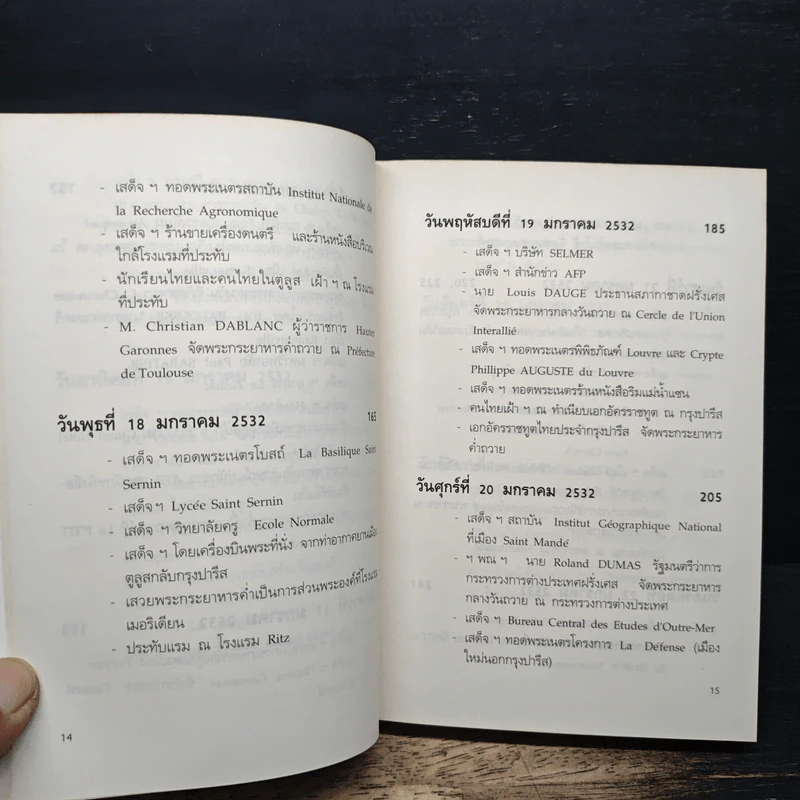 - เสด็จ ฯ ทอดพระเนตรสถาบัน Institut Nationale de
la Recherche Agronomique
- เสด็จ ฯ ร้านขายเครื่องดนตรี และร้านหนังสือบริเวณ
ใกล้โรงแรมที่ประทับ
- นักเรียนไทยและคนไทยในตูลูส เฝ้า ฯ ณ โรงแรม
ที่ประทับ
- M. Christian DABLANC ผู้ว่าราชการ Hautes
Garonnes จัดพระกระยาหารค่ำถวาย ณ Préfecture
de Toulouse
วันพุธที่ 18 มกราคม 2532 165
- เสด็จ ฯ ทอดพระเนตรโบสถ์ La Basilique Saint
Sernin
- เสด็จฯ Lycée Saint Sernin
- เสด็จ ฯ วิทยาลัยครู Ecole Normale
- เสด็จ ฯ โดยเครื่องบินพระที่นั่ง จากท่าอากาศยานเมือง
ตูลูสกลับกรุงปารีส
- เสวยพระกระยาหารค่ำเป็นการส่วนพระองค์ที่โรงแรม
เมอริเดียน
- ประทับแรม ณ โรงแรม Ritz
14
วันพฤหัสบดีที่ 19 มกราคม 2532 185
- เสด็จ ฯ บริษัท SELMER
- เสด็จ ฯ สำนักข่าว AFP
- นาย Louis DAUGE ประธานสภากาชาดฝรั่งเศส
จัดพระกระยาหารกลางวันถวาย ณ Cercle de l'Union
Interallié
- เสด็จ ฯ ทอดพระเนตรพิพิธภัณฑ์ Louvre และ Crypte
Phillippe AUGUSTE du Louvre
- เสด็จ ฯ ทอดพระเนตรร้านหนังสือริมแม่น้ำแซน
- คนไทยเฝ้า ฯ ณ ทำเนียบเอกอัครราชทูต ณ กรุงปารีส
- เอกอัครราชทูตไทยประจำกรุงปารีส จัดพระกระยาหาร
ค่ำถวาย
วันศุกร์ที่ 20 มกราคม 2532 205
- เสด็จ ฯ สถาบัน Institut Géographique National
ที่เมือง Saint Mandé
- ฯ พณฯ นาย Roland DUMAS รัฐมนตรีว่าการ
กระทรวงการต่างประเทศฝรั่งเศส จัดพระกระยาหาร
กลางวันถวาย ณ กระทรวงการต่างประเทศ
- เสด็จ ฯ Bureau Central des Etudes d'Outre-Mer
- เสด็จ ฯ ทอดพระเนตรโครงการ La Défense (เมือง
ใหม่นอกกรุงปารีส)
15